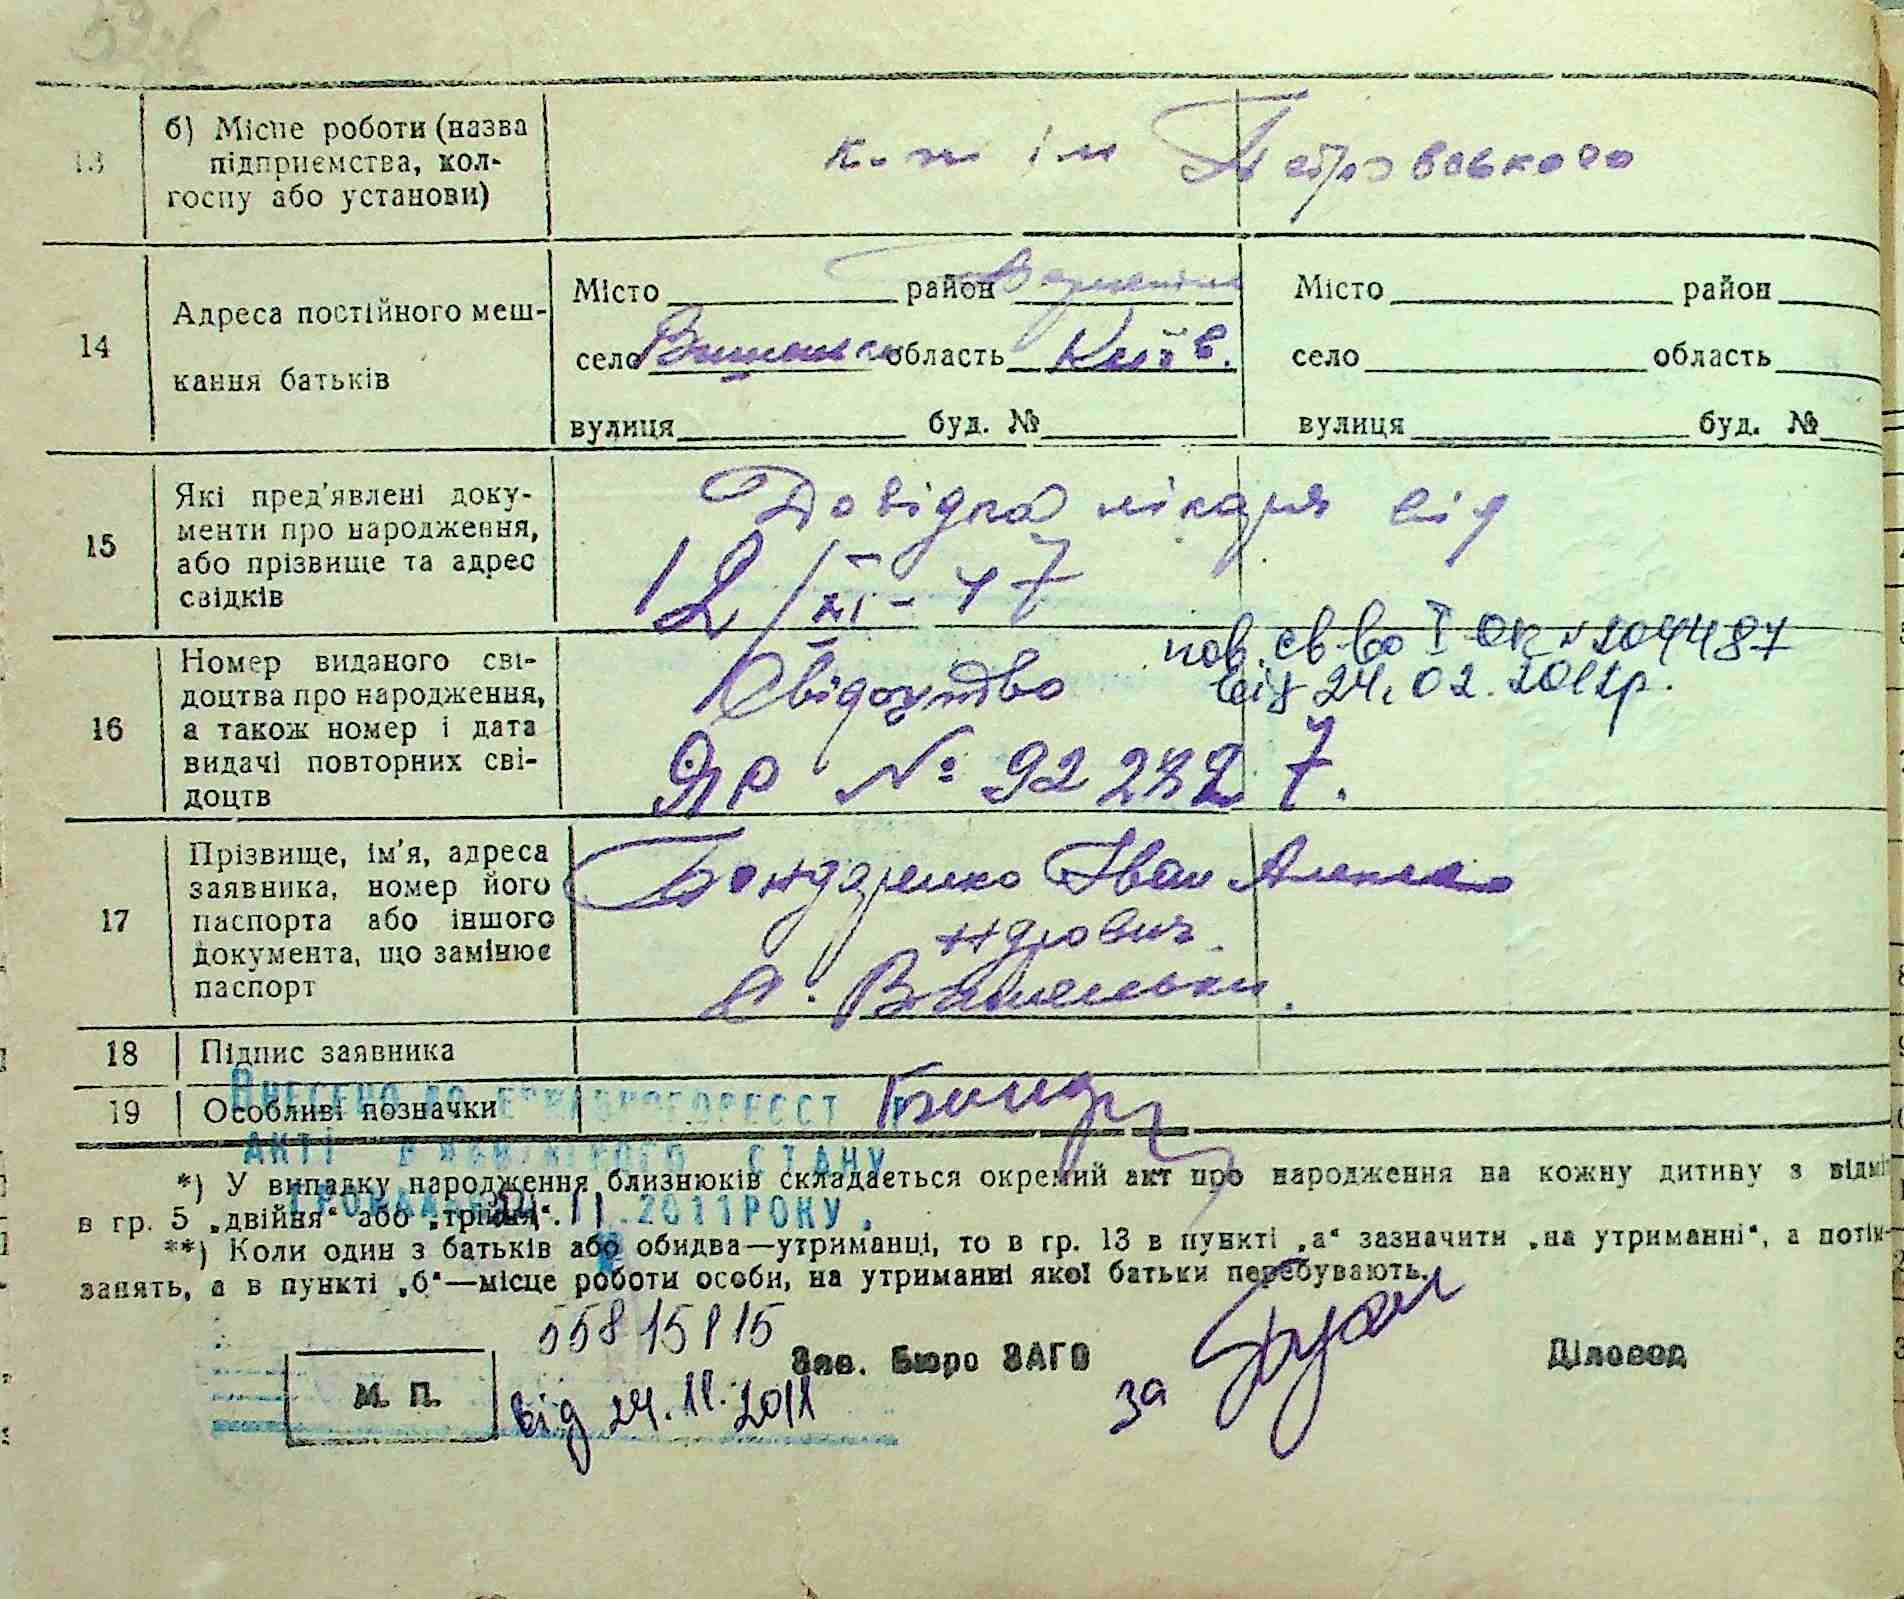 13
б) Місце роботи (назва
підприємства, кол-
госпу або установи)
к-п ім Петровського
14
Адреса постійного меш-
кання батьків
Місто район
село область Київ.
вулиця буд. №
Місто район
село область
вулиця буд. №
15
Які пред'явлені доку-
менти про народження,
або прізвище та адрес
свідків
Довідка лікаря від
12/XI-47
16
Номер виданого сві-
доцтва про народження,
а також номер і дата
видачі повторних сві-
доцтв
Свідоцтво
ЯР № 922827.
пов. св-во I ОК №104487
від 24.02.2012р.
17
Прізвище, ім'я, адреса
заявника, номер його
паспорта або іншого
документа, що замінює
паспорт
Бондаренко Іван Алекса
ндрович.
с. Вишеньки.
18
Підпис заявника
19
Особливі позначки
Бонд
ВНЕСЕНО ДО ДЕРЖАВНОГО РЕЄСТРУ
АКТІВ ЦИВІЛЬНОГО СТАНУ
ГРОМАДЯН 24.11.2011 РОКУ.
*) У випадку народження близнюків складається окремий акт про народження на кожну дитину з відмі
в гр. 5 „двійня“ або „трійня“.
**) Коли один з батьків або обидва—утриманці, то в гр. 13 в пункті „а“ зазначити „на утриманні“, а потім-
занять, а в пункті „б“—місце роботи особи, на утриманні якої батьки перебувають.
55815815
М. П.
від 24.11.2011
Зав. Бюро ЗАГС
за
Діловод